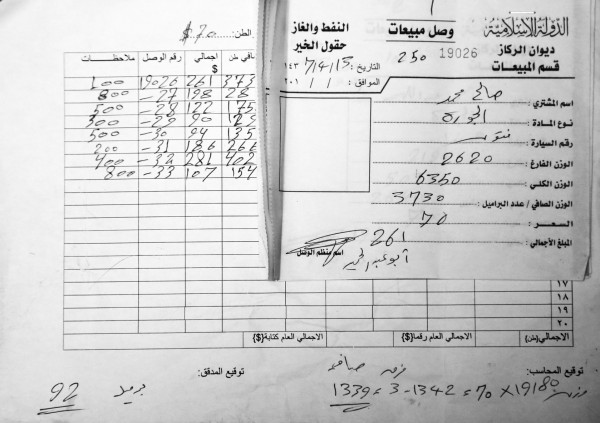 الطن: $ 70
صافي طن اجمالي $ رقم الوصل ملاحظات
373 261 19026 100
28 198 -27 800
175 122 -28 500
129 90 -29 300
135 94 -30 500
266 186 -31 200
402 281 -32 400
154 107 -33 800
الدولة الإسلامية
ديوان الركاز
قسم المبيعات
وصل مبيعات
250 19026
النفط والغاز
حقول الخير
التاريخ: 15/4/7 ١٤٣
الموافق: / / ٢٠١
اسم المشتري: صالح محمد
نوع المادة:
رقم السيارة:
الوزن الفارغ: 2620
الوزن الكلي: 6350
الوزن الصافي / عدد البراميل: 3730
السعر: 70
المبلغ الأجمالي: 261
اسم منظم الوصل
١٧
١٨
١٩
٢٠
الاجمالي(طن) الاجمالي العام رقما{$} الاجمالي العام كتابة{$}
توقيع المحاسب: توقيع المدقق:
19180 × 70 = 1342 - 3 = 1339
92